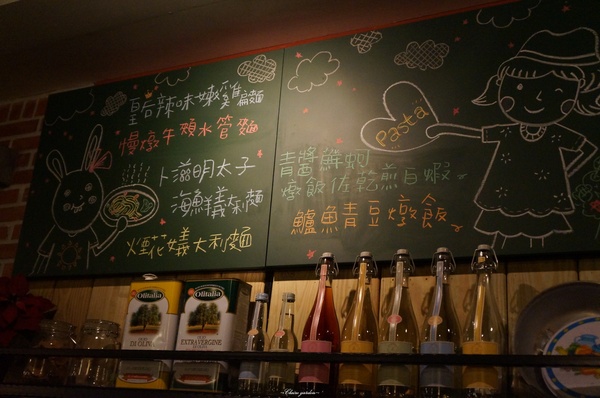 皇后辣味嫩雞扁麵
慢燉牛頰水管麵
卜滋明太子
海鮮義大利麵
煙花義大利麵
Pasta
青醬鮮蜆
燉飯佐乾煎白蝦
鱸魚青豆燉飯
Olitalia
Olitalia
EXTRAVERGINE
~Claire garden~